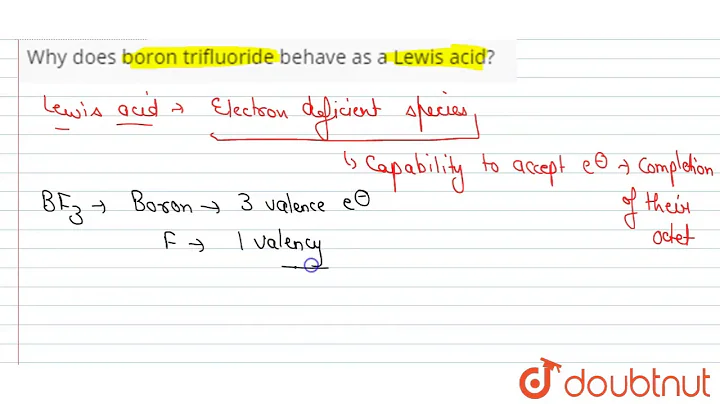 Why does boron trifluoride behave as a Lewis acid?
Lewis acid → Electron deficient species
↳ Capability to accept e⊖ → Completion
of their
octet
BF3 → Boron → 3 valence e⊖
F → 1 valency
doubtnut